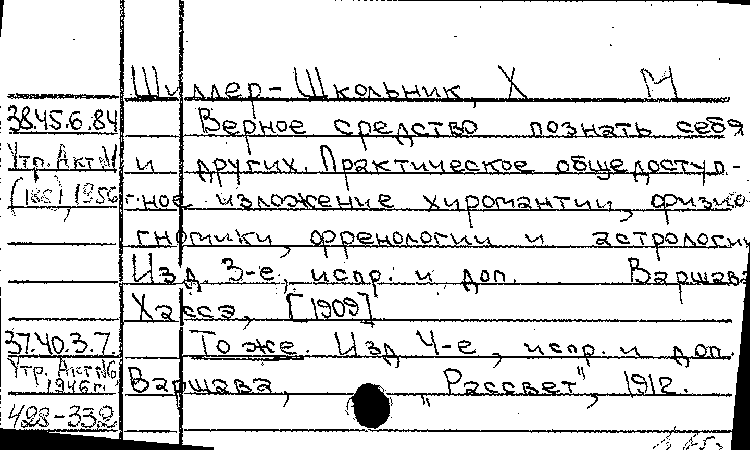 Шиллер-Школьник, Х М
38.45.6.84 Верное средство познать себя
Утр. Акт №1 и других. Практическое общедоступ-
(186), 1956 г. ное изложение хиромантии, физио-
гномики, френологии и астрологии
Изд 3-е, испр. и доп. Варшава
Хасса, [1909]
37.40.3.7. То же. Изд 4-е, испр. и доп.
Утр. Акт №6 1946 г. Варшава, „Рассвет", 1912.
428-332